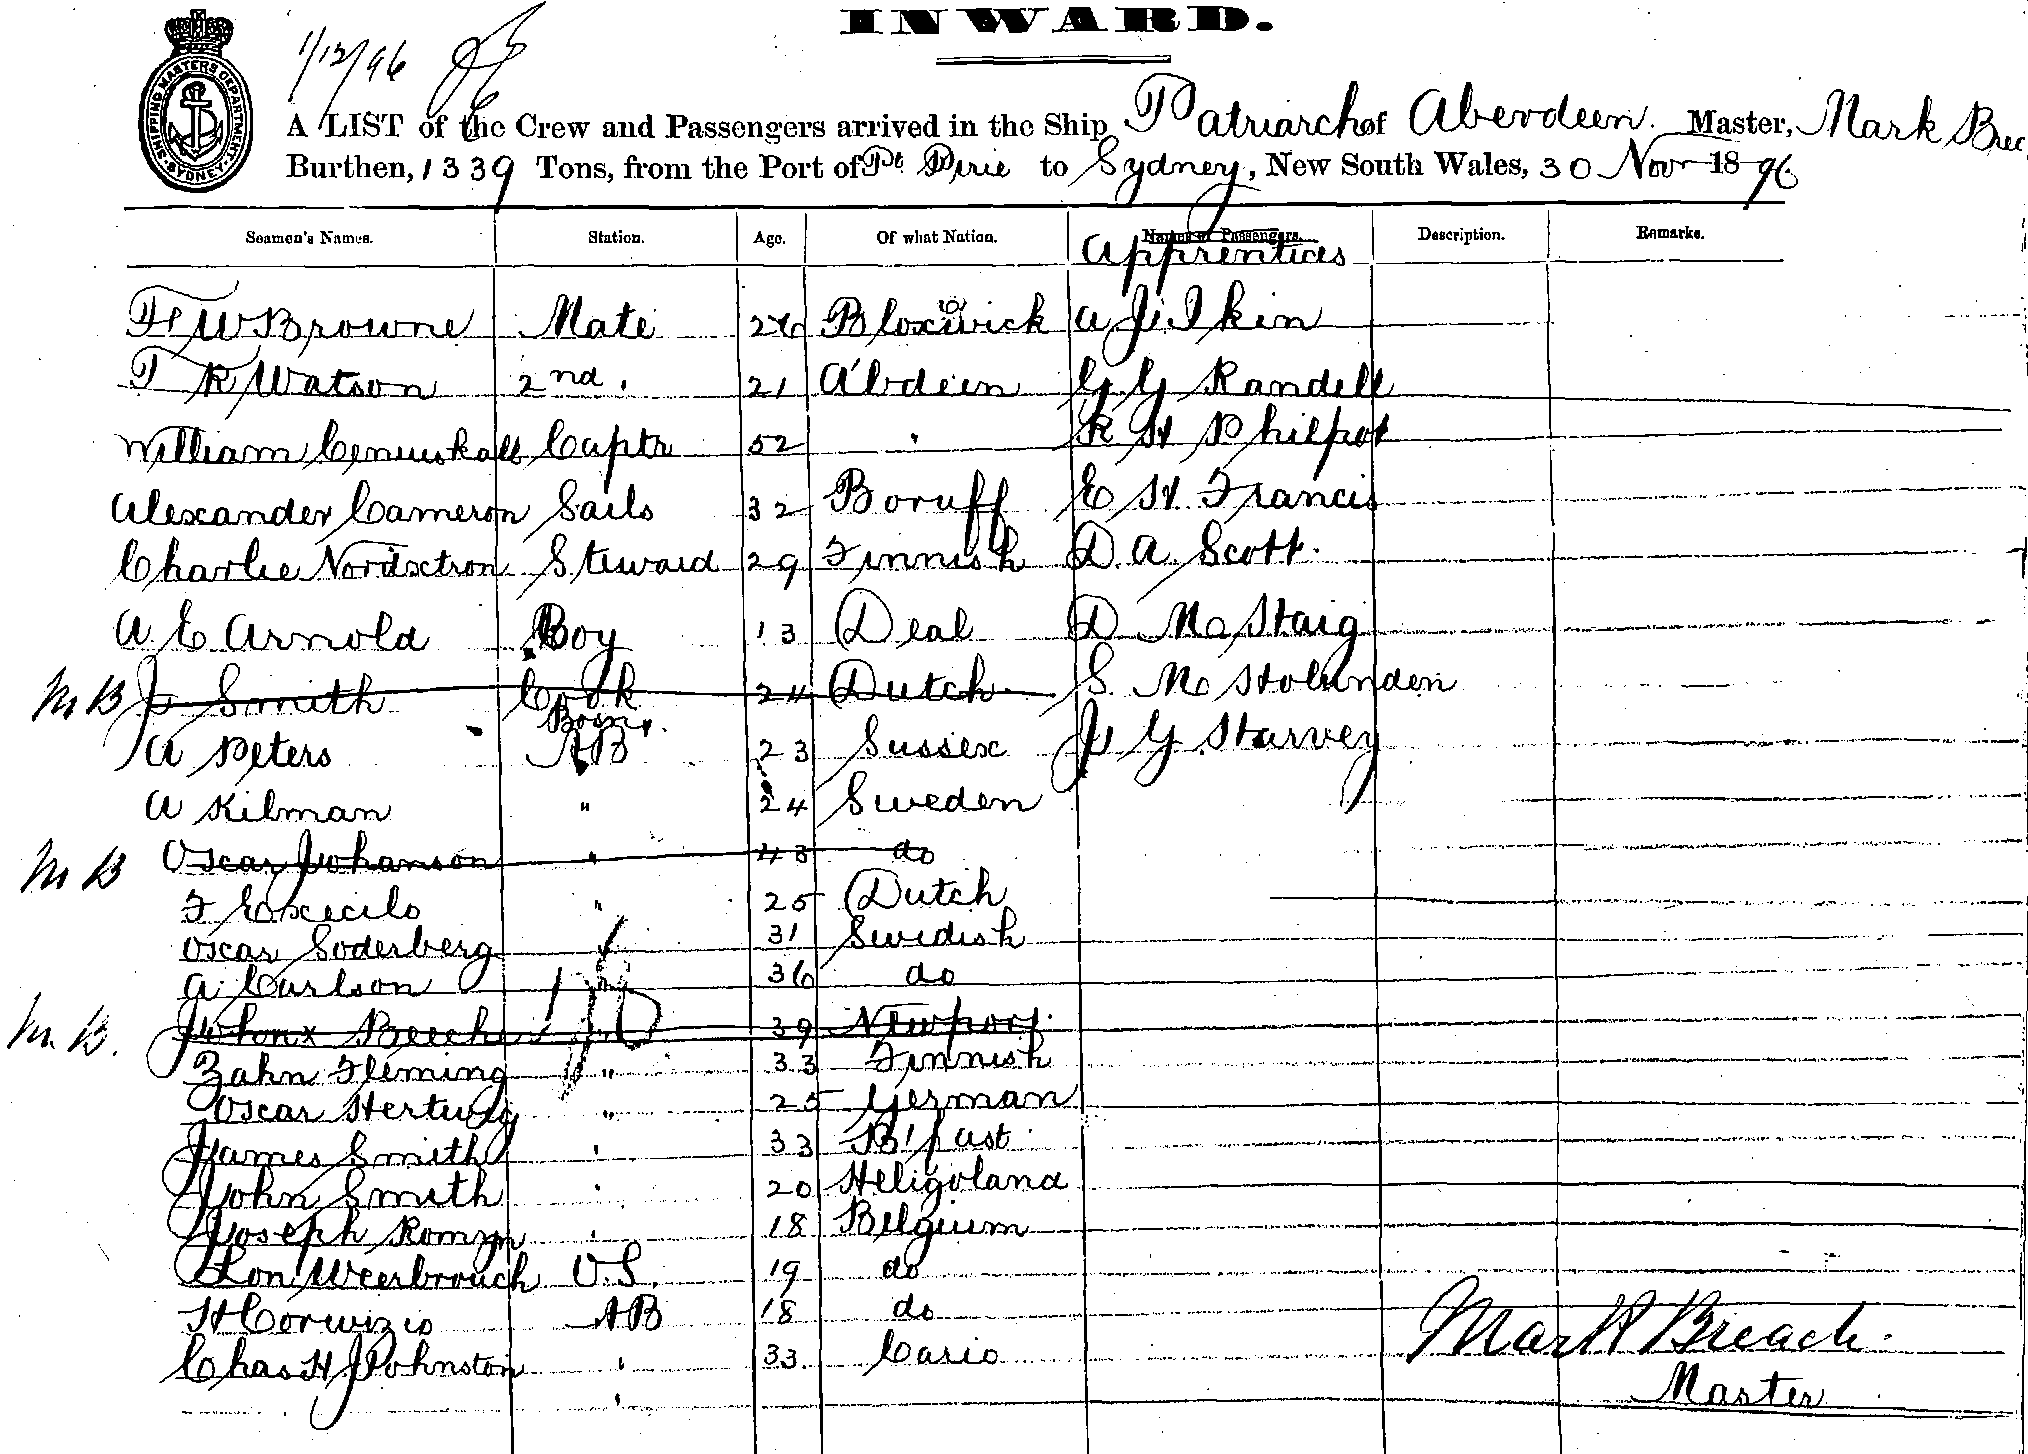 INWARD.
1/12/96
SHIPPING MASTERS DEPARTMENT SYDNEY
A LIST of the Crew and Passengers arrived in the Ship Patriarch of Aberdeen. Master, Mark Brea
Burthen, 1339 Tons, from the Port of Pt Pirie to Sydney, New South Wales, 30 Novr 1896.
Seamen's Names. Station. Age. Of what Nation. Names of Passengers. Description. Remarks.
Apprentices
W Browne Mate 26 Bloxwich A J Ikin
T R Watson 2nd. 21 Abdeen G G Randell
William Cruickshall Captr 52 " R H Philpot
Alexander Cameron Sails 32 Boruff E H Francis
Charlie Nordsctron Steward 29 Finnish D. A. Scott.
A. E Arnold Boy 13 Deal D Mc Haig
M B J Smith Cook 24 Dutch S. Mc Holunden
Bosn
A Peters AB 23 Sussex J G Harvey
A Kilman " 24 Sweden
M B Oscar Johanson " 43 do
F Excecilo " 25 Dutch
Oscar Soderberg 31 Swedish
A. Carlson 36 do
M. B. Beecher 39 Newport
Zahn Fleming " 33 Finnish
Oscar Hertwig " 25 German
James Smith " 33 B'fast
John Smith " 20 Heligoland
Joseph Romyn " 18 Belgium
Lon Weerbrouch O.S. 19 do
H Corwizio AB 18 do
Chas H. Johnston " 33 Casio
"
Mark Breach.
Master